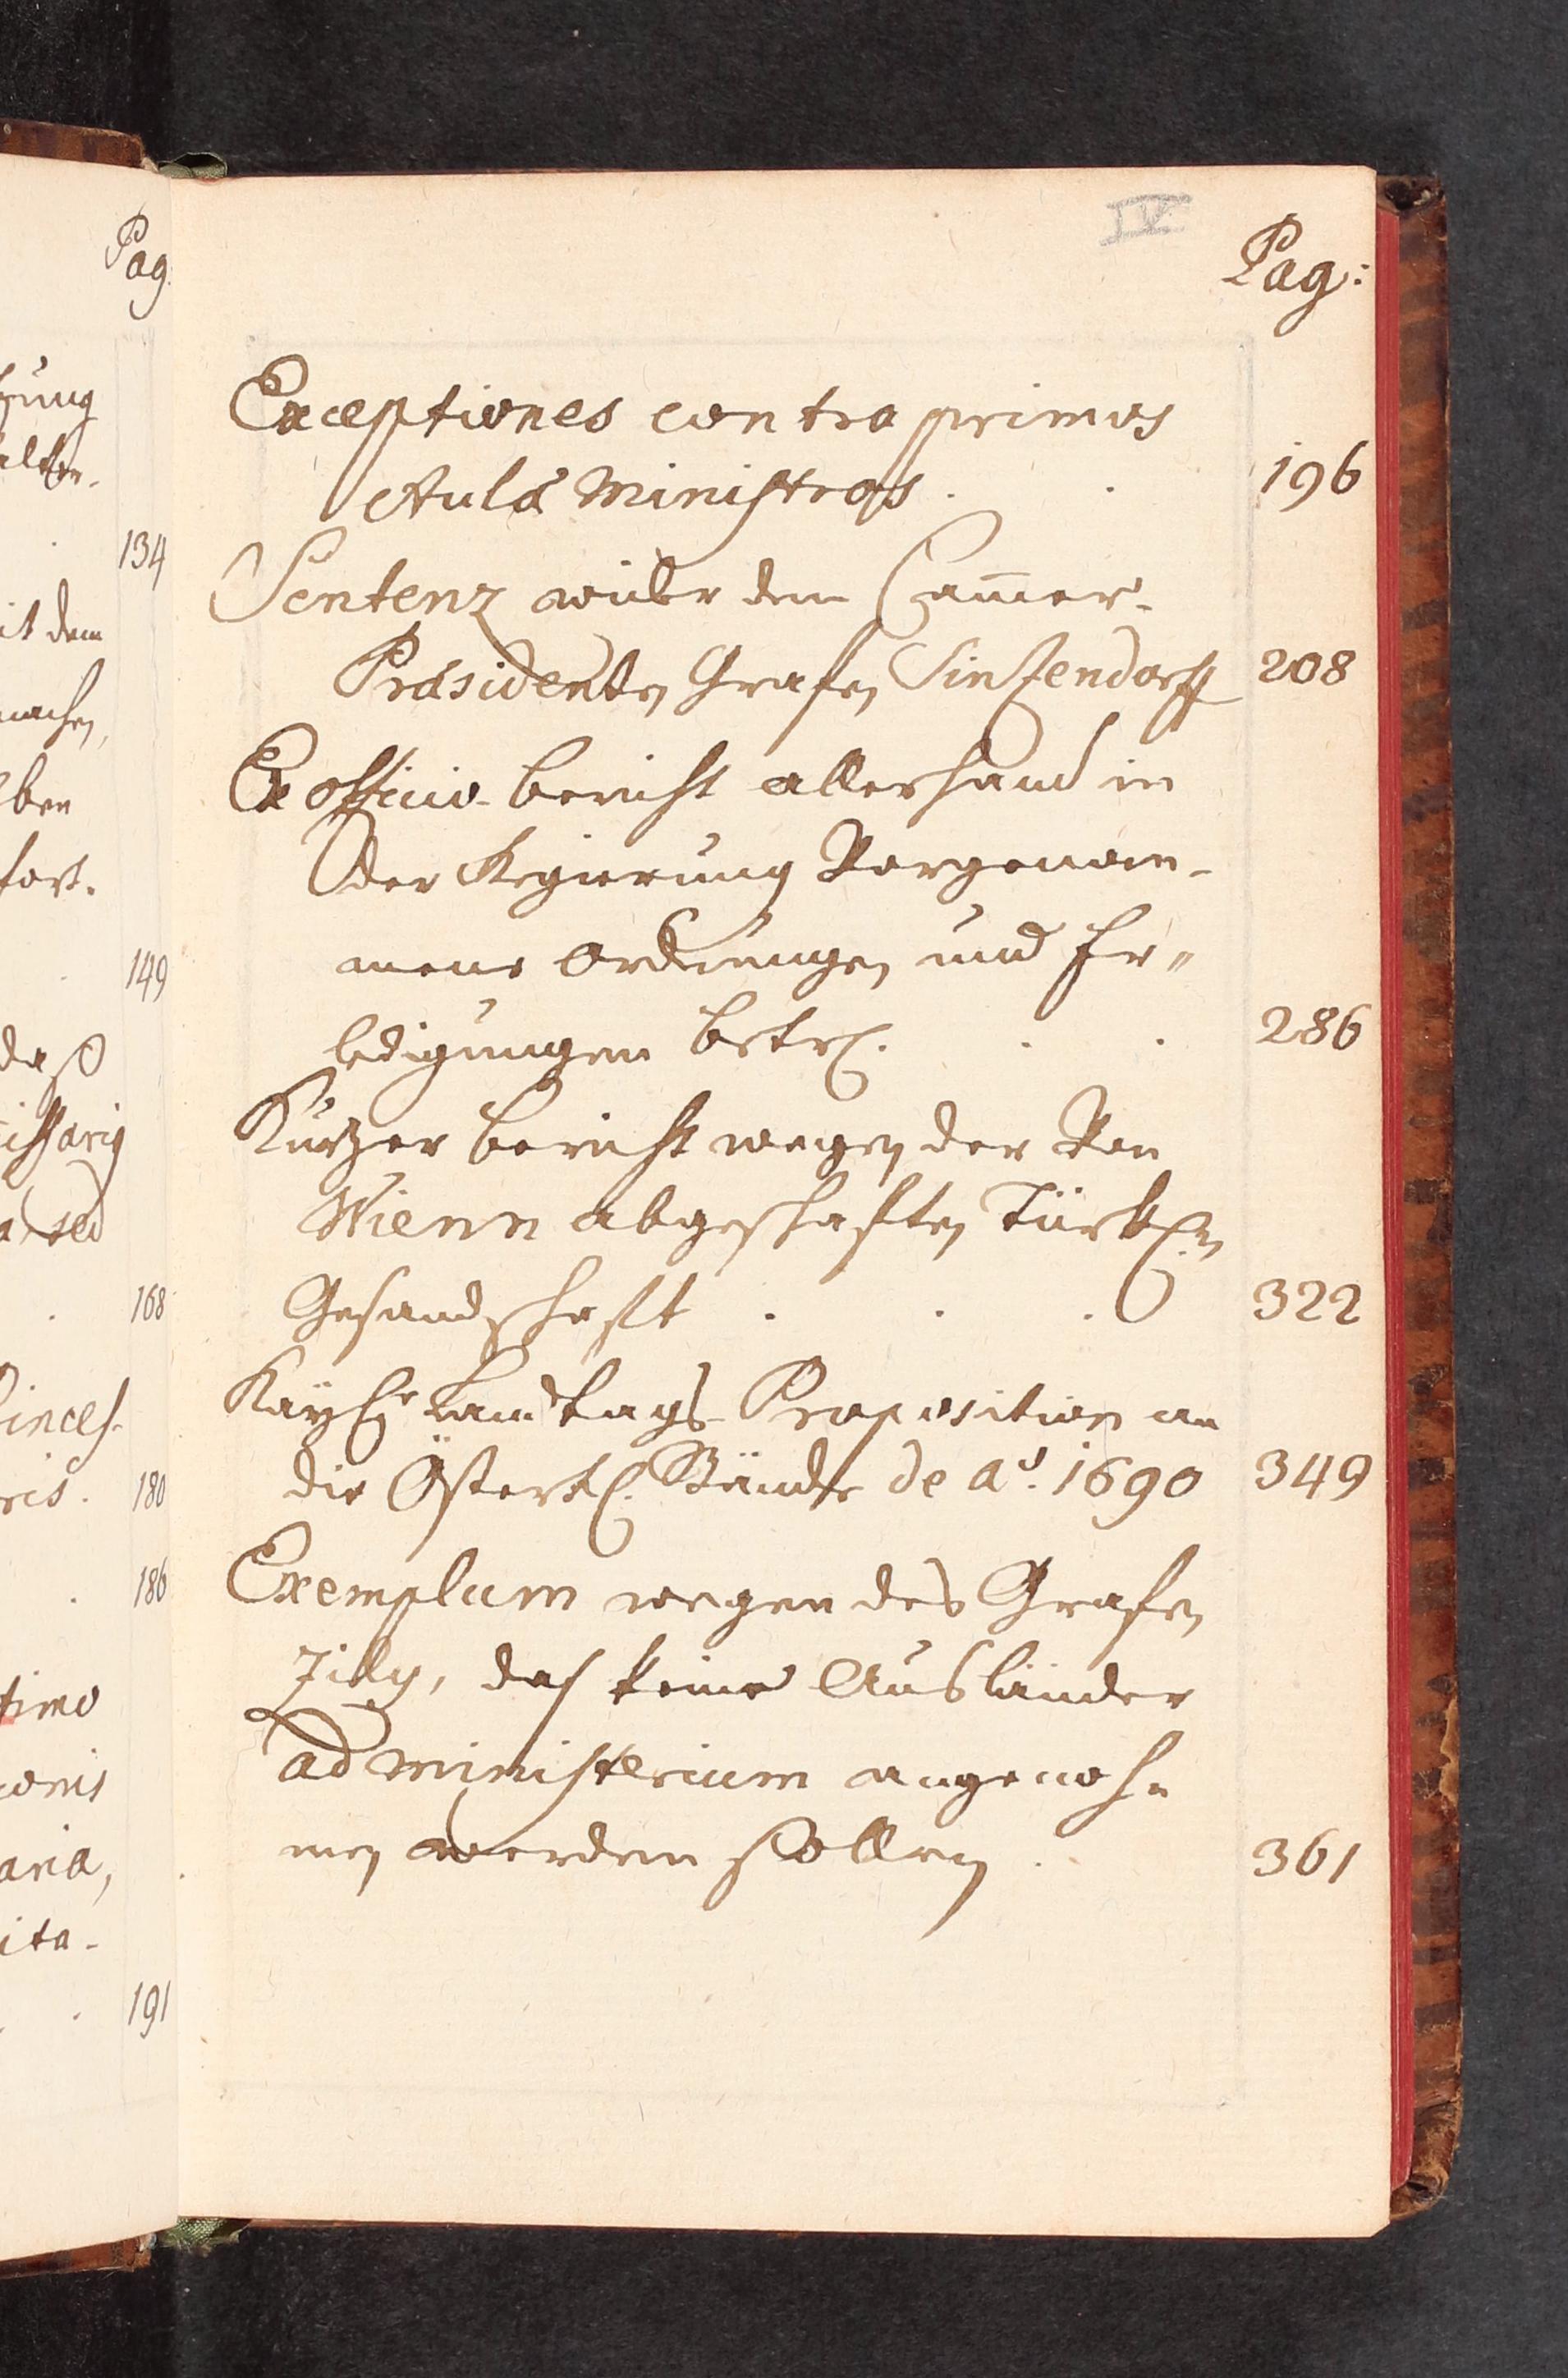 Pag.
rung
alten.
134
it dem
machen,
ben
fort.
149
daß
issarig
a, sed
168
inces-
ris. 180
. 186
timo
ionis
aria,
ita-
191
IV
Pag:
Exceptiones contra primos
Aulæ Ministros . . 196
Sentenz wider den Cam̄er-
Præsidenten Grafen Sintzendorff 208
Ex officio-bericht allerhand in
der Regierung Vorgenom-
mene Ordnungen und Er-
ledigungen betrf. . . 286
Kurtzer bericht wegen der Von
Wienn abgeschafften Türkschen
Gesandschafft . . . 322
Kayßr. Landtags-Proposition an
die Österrl. Stände de ao. 1690 349
Exemplum wegen des Grafen
Zily, daß keine Ausländer
ad ministerium angenoh-
men werden sollen . 361